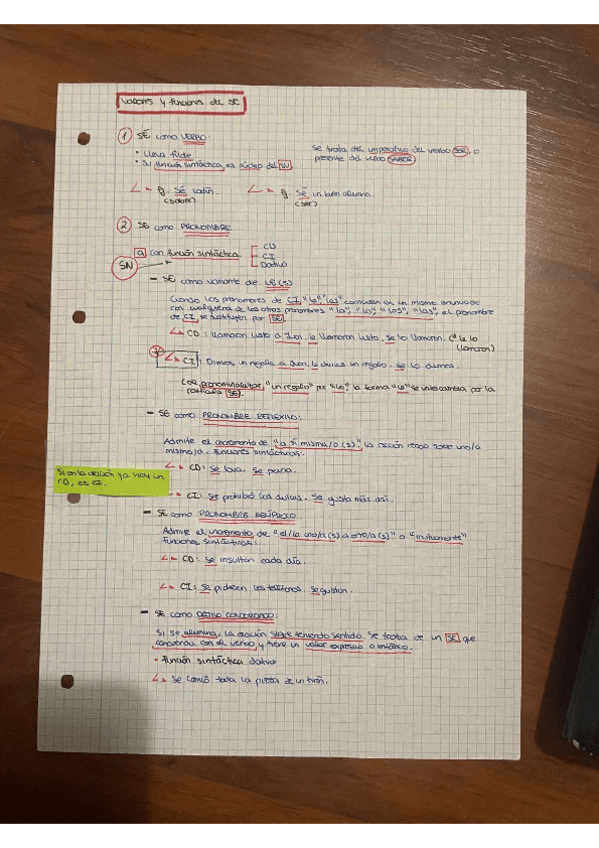 Valores y funciones del SE
1 SÉ como VERBO:
· Lleva tilde
· Su función sintáctica es núcleo del SV
Se trata del imperativo del verbo SER, o
presente del verbo SABER
Ej. Sé latín.
(saber)
Ej. Sé un buen alumno.
(ser)
2 SE como PRONOMBRE
a con función sintáctica
CD
CI
Dativo
SN
- SE como variante de LE(S)
Cuando los pronombres de CI "le" "les" coinciden en un mismo enunciado
con cualquiera de los otros pronombres "la", "lo", "los", "las", el pronombre
de CI se sustituye por SE.
CD: Llamaron listo a Juan. Le llamaron listo. Se lo llamaron. (le lo
llamaron)
CI: Dimos un regalo a Juan. Le dimos un regalo. Se lo dimos.
Al pronominalizar "un regalo" por "lo", la forma "le" se intercambia por la
SE.
- SE como PRONOMBRE REFLEXIVO:
Admite el incremento de "a sí misma/o(s)". La acción recae sobre uno/a
mismo/a. Funciones sintácticas:
CD: Se lava. Se peina.
Si en la oración ya hay un
CD, es CI.
CI: Se prohibió los dulces. Se gusta más así.
- SE como PRONOMBRE RECÍPROCO
Admite el incremento de "el/la uno/a(s) a otro/a(s)" o "mutuamente"
Funciones sintácticas:
CD: Se insultan cada día.
CI: Se pidieron los teléfonos. Se gustan.
- SE como DATIVO CONCORDADO:
Si se elimina, la oración sigue teniendo sentido. Se trata de un SE que
concuerda con el verbo y tiene un valor expresivo o enfático.
· Función sintáctica dativo
Se comió toda la pizza de un tirón.